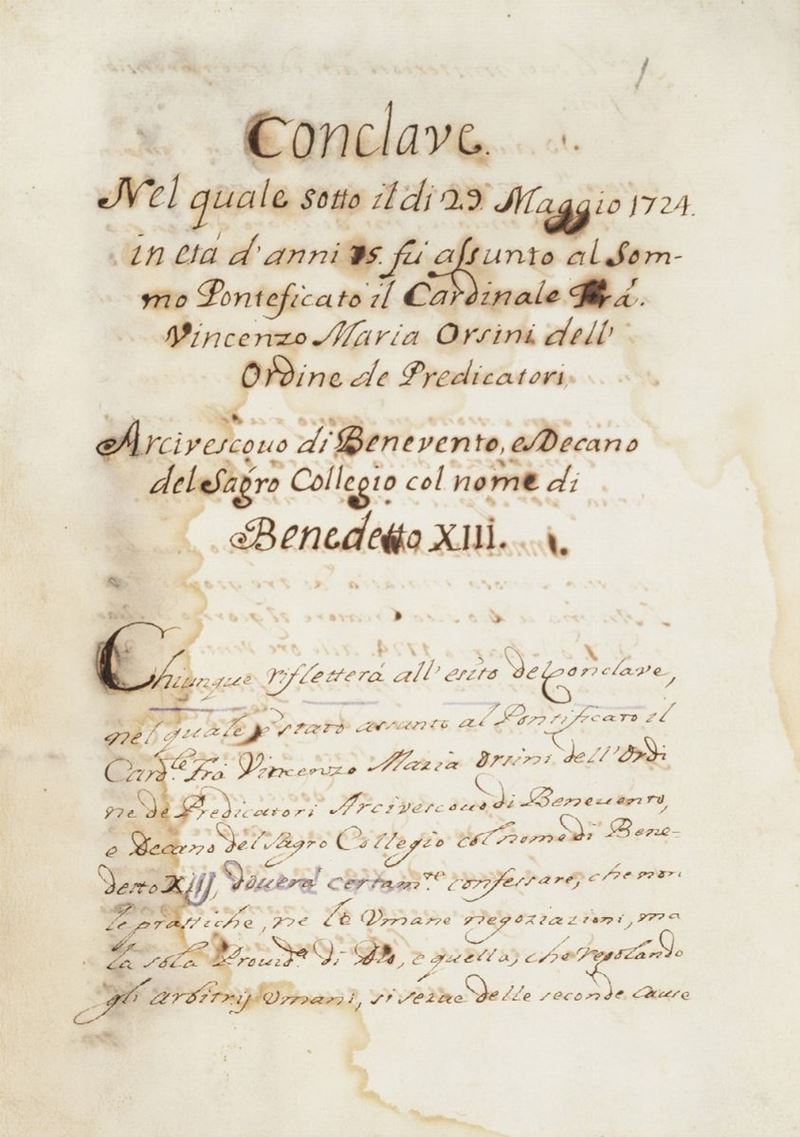 1
Conclave.
Nel quale sotto il di 29. Maggio 1724.
in etá d'anni 75. fú assunto al Som-
mo Ponteficato il Cardinale Frá.
Vincenzo Maria Orsini dell'
Ordine de Predicatori
Arcivescouo di Benevento, e Decano
del Sagro Collegio col nome di
Benedetto XIII.
Chiunque rifletterá all'esito del Conclave,
nel quale é stato assunto al Pontificato il
Card.le Frá Vincenzo Maria Orsini dell'Ordi
ne de Predicatori Arcivescouo di Beneuento,
e Decano del Sagro Collegio col nome di Bene-
detto XIIJ, douerá certam.te confessare, che non
le prattiche, ne le Vmane negoziazioni, ma
la sola Prouid.a di Dio, e quella, che regolando
gli arbitrij Vmani, si serue delle seconde cause